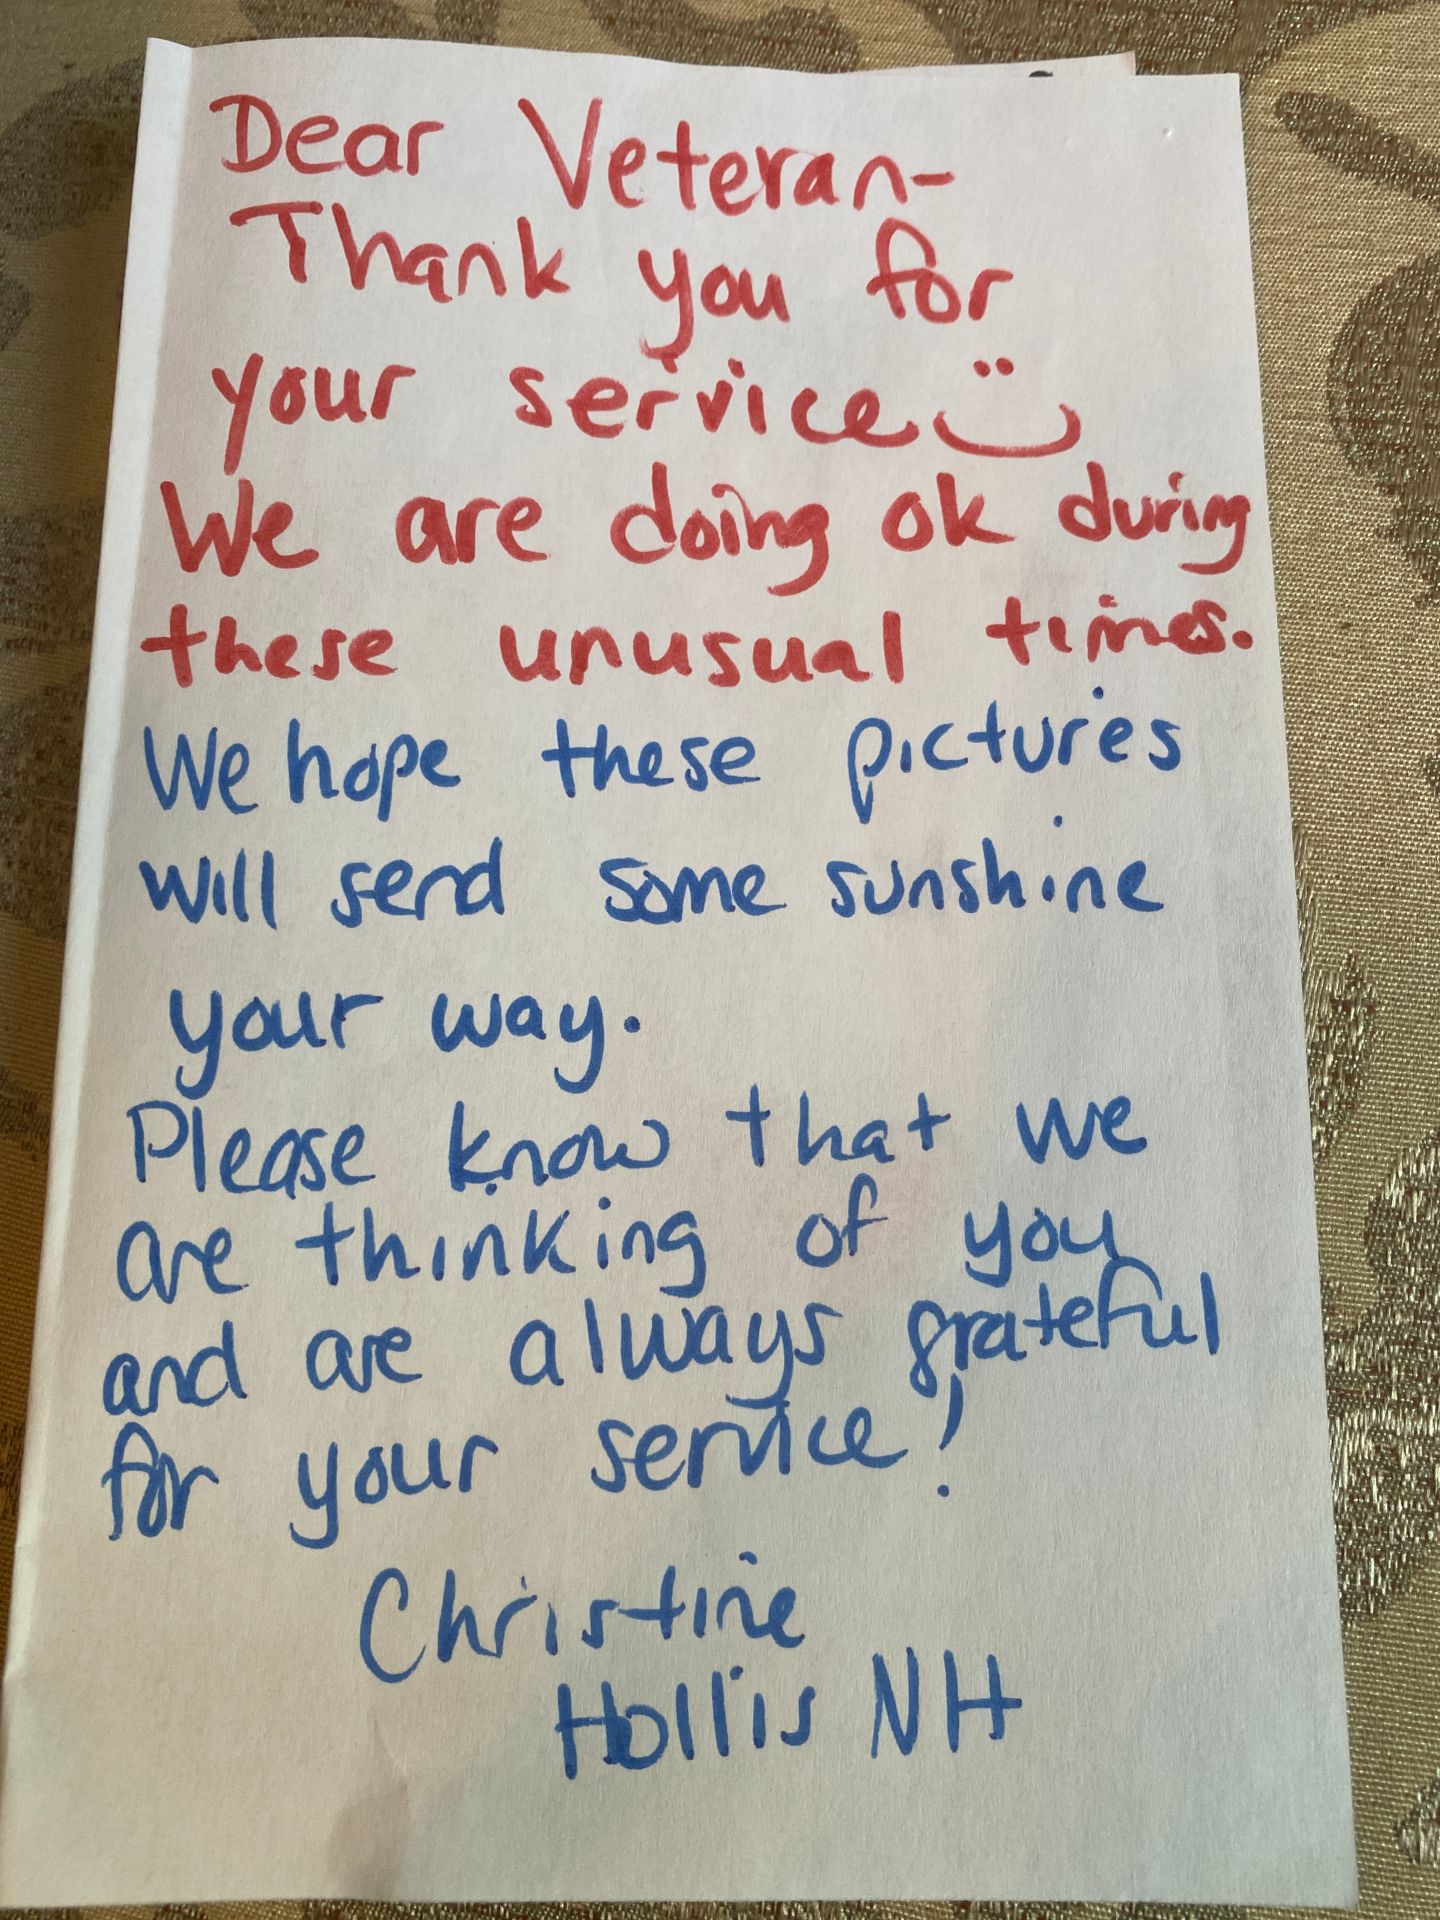 Dear Veteran-
Thank you for
your service
We are doing ok during
these unusual times.
We hope these pictures
will send some sunshine
your way.
Please know that we
are thinking of you
and are always grateful
for your service!
Christine
Hollis NH